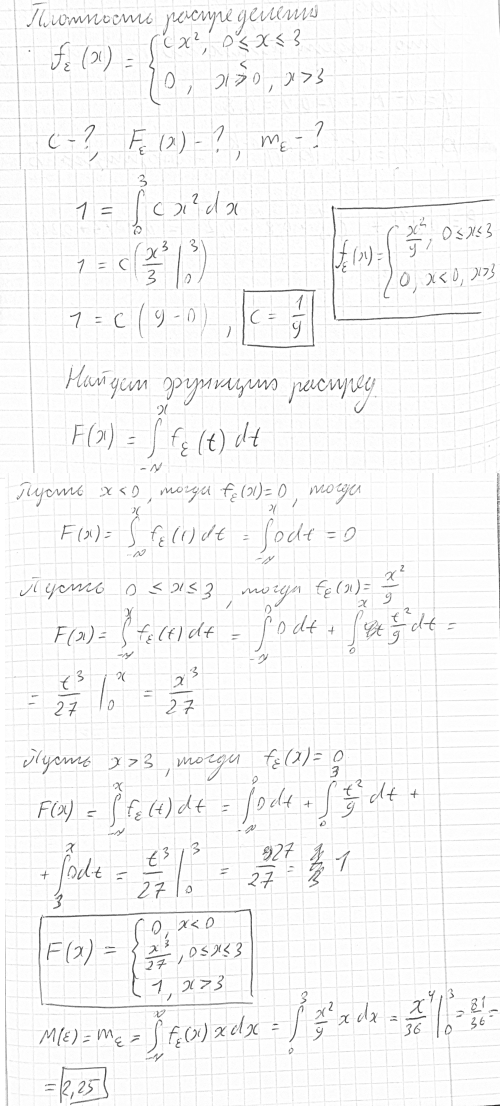 Плотность распределения
f_ε(x) = { cx², 0 ≤ x ≤ 3
0, x < 0, x > 3
c - ?, F_ε(x) - ?, m_ε - ?
1 = ∫₀³ c x² dx
1 = c (x³/3 |₀³)
1 = c (9 - 0), c = 1/9
f_ε(x) = { x²/9, 0 ≤ x ≤ 3
0, x < 0, x > 3
Найдем функцию распред
F(x) = ∫_{-∞}^{x} f_ε(t) dt
Пусть x < 0, тогда f_ε(x) = 0, тогда
F(x) = ∫_{-∞}^{x} f_ε(t) dt = ∫_{-∞}^{x} 0 dt = 0
Пусть 0 ≤ x ≤ 3, тогда f_ε(x) = x²/9
F(x) = ∫_{-∞}^{x} f_ε(t) dt = ∫_{-∞}^{0} 0 dt + ∫₀^x t²/9 dt =
= t³/27 |₀^x = x³/27
Пусть x > 3, тогда f_ε(x) = 0
F(x) = ∫_{-∞}^{x} f_ε(t) dt = ∫_{-∞}^{0} 0 dt + ∫₀³ t²/9 dt +
+ ∫₃^x 0 dt = t³/27 |₀³ = 27/27 = 1
F(x) = { 0, x < 0
x³/27, 0 ≤ x ≤ 3
1, x > 3
M(ε) = m_ε = ∫_{-∞}^{∞} f_ε(x) x dx = ∫₀³ x²/9 x dx = x⁴/36 |₀³ = 81/36 =
= 2,25